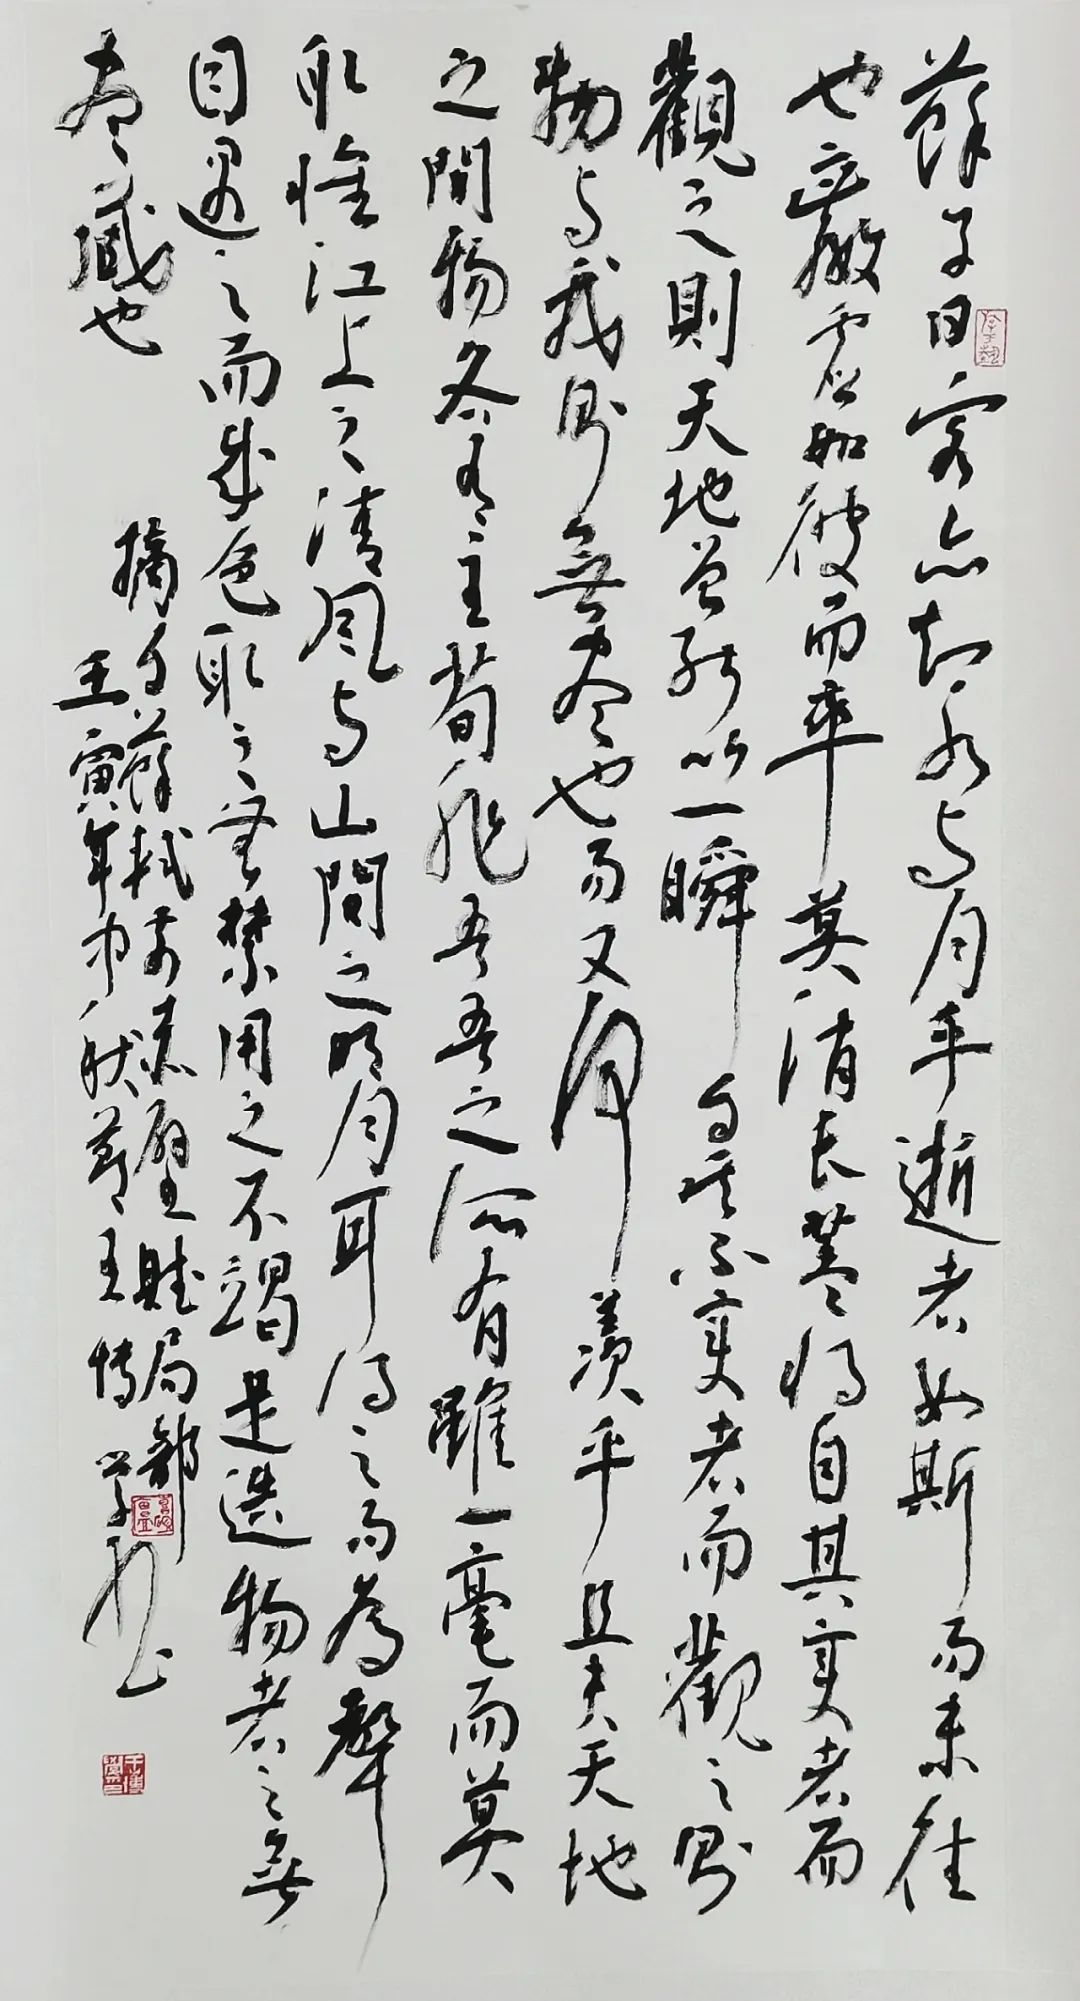 蘇子曰客亦知水与月乎逝者如斯而未往
也虚如彼而卒莫消長蓋将自其变者而
觀之則天地曾能以一瞬自其不变者而觀之則
物与我則無尽也而又何羡乎且夫天地
之間物各有主苟非吾吾之所有雖一毫而莫
取惟江上之清风与山間之明月耳得之而為聲
目遇之而成色取之無禁用之不竭是造物者之無
尽藏也
摘自蘇軾前赤壁賦局部
壬寅年中秋節王博学书
王博學印